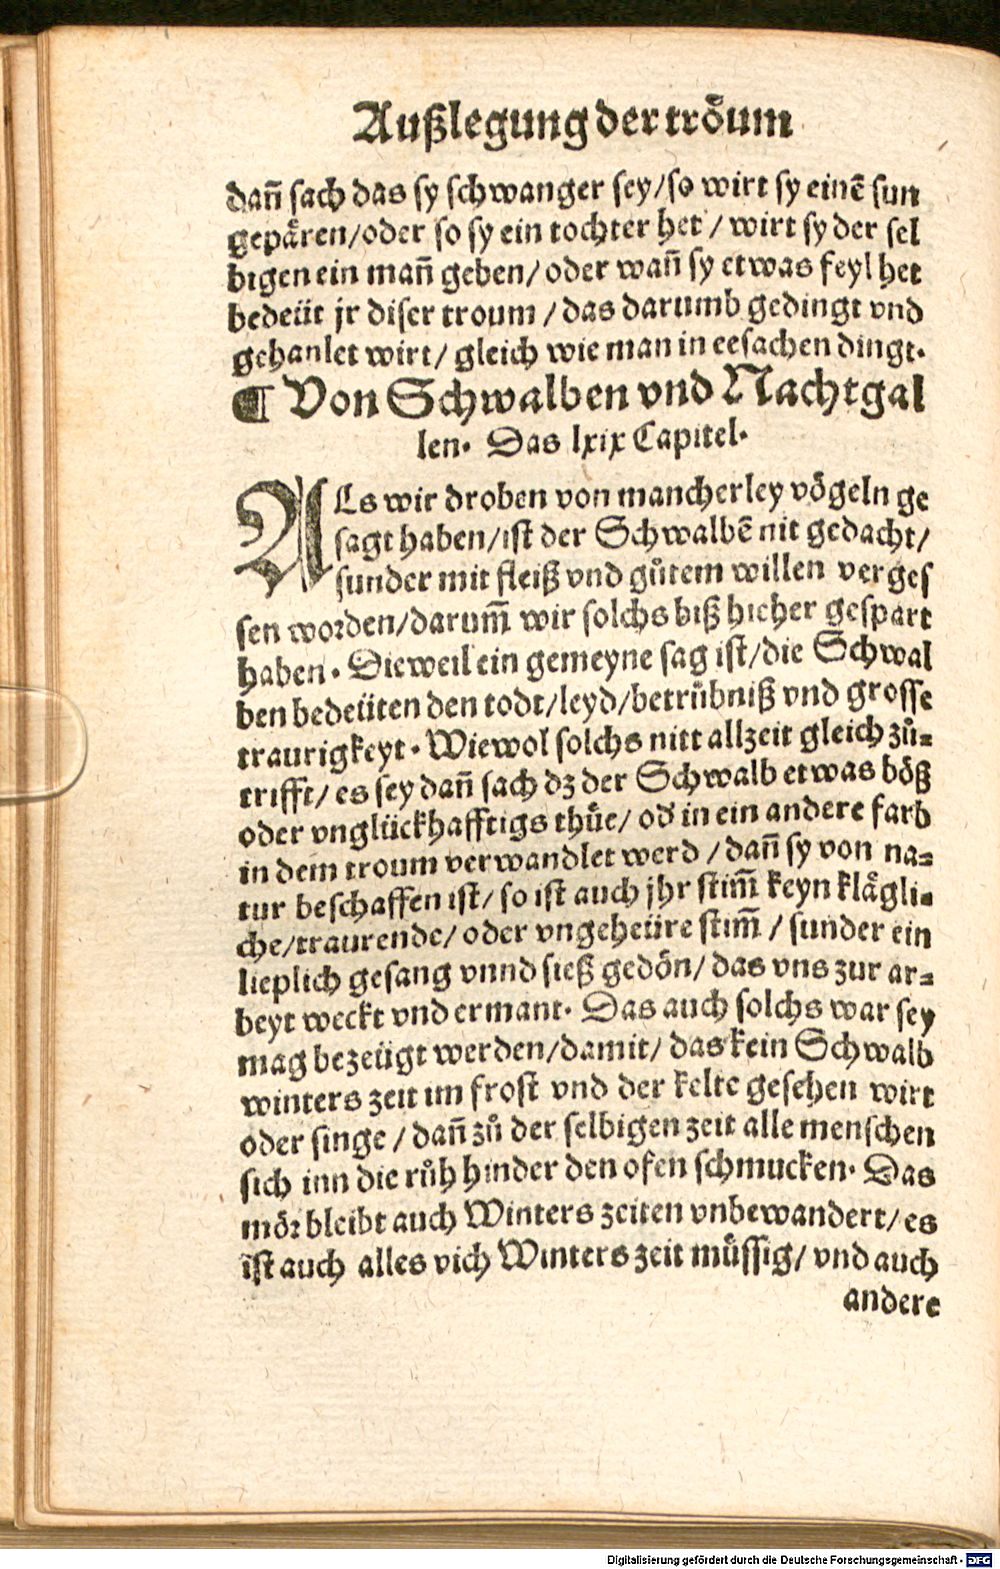 Außlegung der troͤum
dañ sach das sy schwanger sey/so wirt sy einē sun
gepaͤren/oder so sy ein tochter het / wirt sy der sel
bigen ein mañ geben/ oder wañ sy etwas feyl het
bedeüt jr diser troum / das darumb gedingt vnd
gehanlet wirt/ gleich wie man in eesachen dingt.
¶ Von Schwalben vnd Nachtgal
len. Das lxix Capitel.
ALs wir droben von mancherley voͤgeln ge
sagt haben/ist der Schwalbē nit gedacht/
sunder mit fleiß vnd guͦtem willen verges
sen worden/darum̃ wir solchs biß hieher gespart
haben. Dieweil ein gemeyne sag ist/die Schwal
ben bedeüten den todt/leyd/betruͤbniß vnd grosse
traurigkeyt. Wiewol solchs nitt allzeit gleich zuͦ-
trifft/ es sey dañ sach dz der Schwalb etwas boͤß
oder vnglückhafftigs thuͤe/ od̕ in ein andere farb
in dem troum verwandlet werd / dañ sy von na-
tur beschaffen ist/ so ist auch jhr stim̃ keyn klaͤgli-
che/traurende/ oder vngeheüre stim̃ / sunder ein
lieplich gesang vnnd sieß gedoͤn/ das vns zur ar-
beyt weckt vnd ermant. Das auch solchs war sey
mag bezeügt werden/damit/ das kein Schwalb
winters zeit im frost vnd der kelte gesehen wirt
oder singe / dañ zuͦ der selbigen zeit alle menschen
sich inn die ruͦh hinder den ofen schmucken. Das
moͤr bleibt auch Winters zeiten vnbewandert/ es
ist auch alles vich Winters zeit muͤssig/ vnd auch
andere
Digitalisierung gefördert durch die Deutsche Forschungsgemeinschaft - DFG